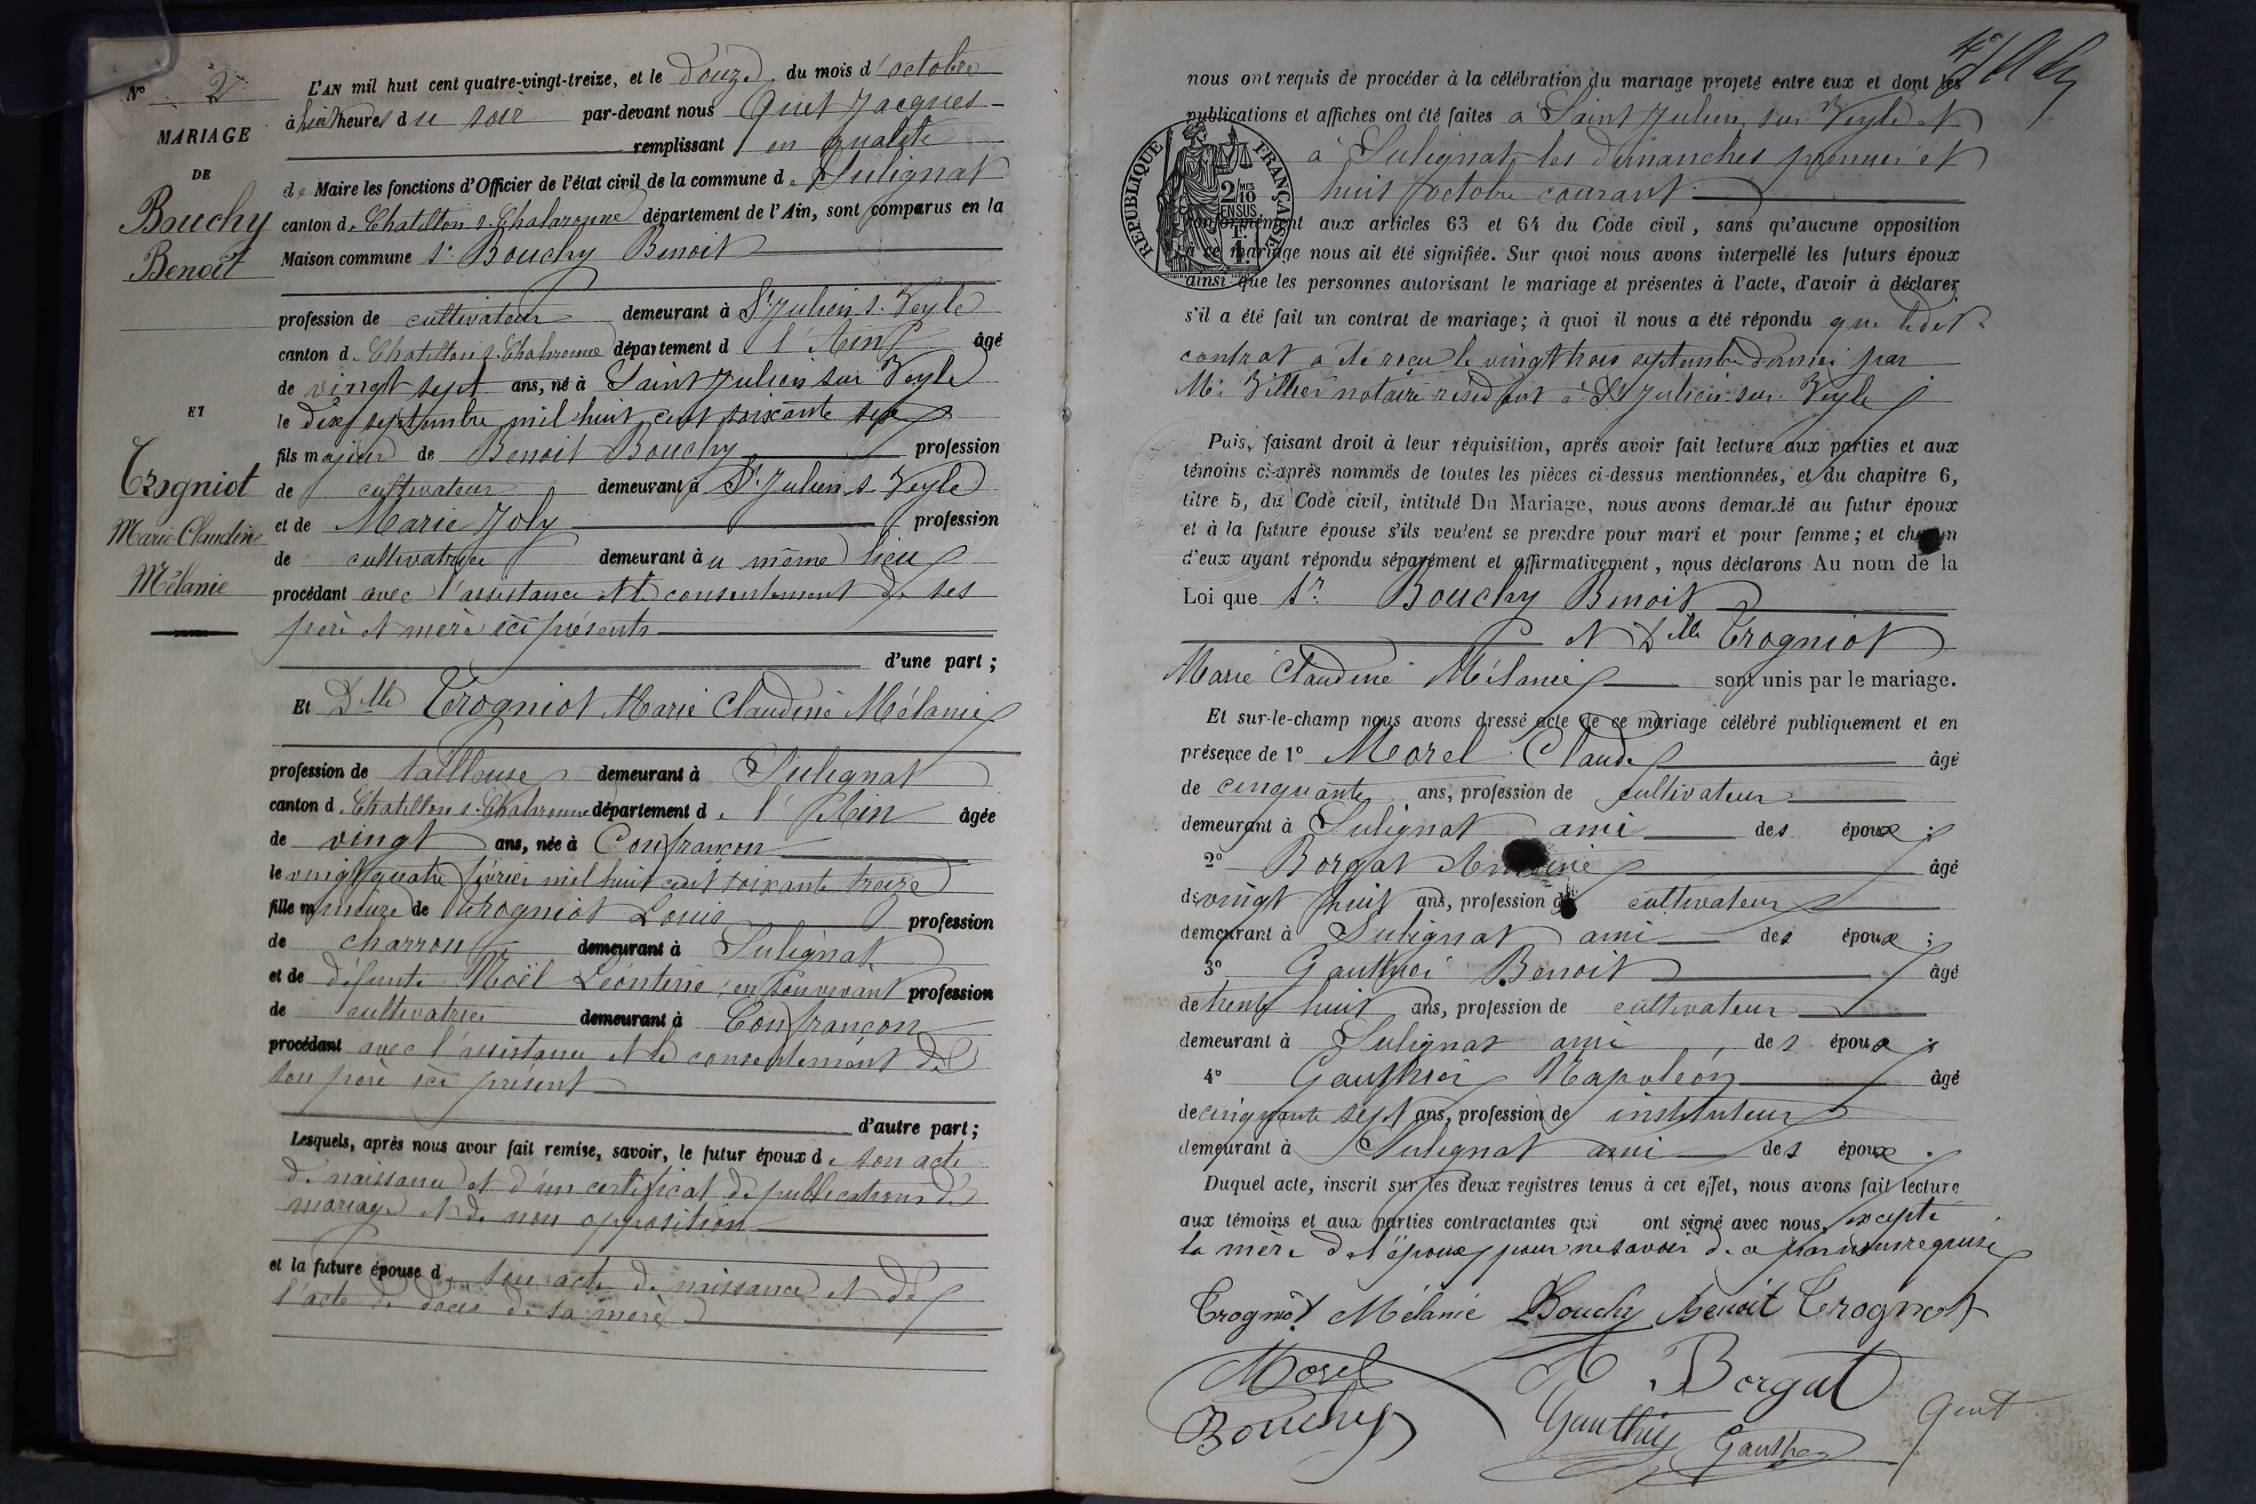 N° 2
MARIAGE
DE
Bouchy
Benoît
ET
Trogniot
Marie Claudine
Mélanie
L'AN mil huit cent quatre-vingt-treize, et le douze du mois d'octobre
à huit heures du soir par-devant nous Quet Jacques
remplissant en qualité
de Maire les fonctions d'Officier de l'état civil de la commune de Sulignat
canton de Chatillon s. Chalaronne département de l'Ain, sont comparus en la
Maison commune Sr Bouchy Benoit
profession de cultivateur demeurant à St Julien s. Veyle
canton de Chatillon s. Chalaronne département de l'Ain âgé
de vingt sept ans, né à Saint Julien sur Veyle
le dix septembre mil huit cent soixante six
fils majeur de Benoit Bouchy profession
de cultivateur demeurant à St Julien s. Veyle
et de Marie Joly profession
de cultivatrice demeurant au même lieu
procédant avec l'assistance et le consentement de ses
père et mère ici présents
d'une part ;
Et Dlle Trogniot Marie Claudine Mélanie
profession de tailleuse demeurant à Sulignat
canton de Chatillon s. Chalaronne département de l'Ain âgée
de vingt ans, née à Confrançon
le vingt quatre février mil huit cent soixante treize
fille mineure de Trogniot Louis profession
de charron demeurant à Sulignat
et de défunte Noël Léontine en son vivant profession
de cultivatrice demeurant à Confrançon
procédant avec l'assistance et le consentement de
son père ici présent
d'autre part ;
Lesquels, après nous avoir fait remise, savoir, le futur époux de son acte
de naissance et d'un certificat de publications de
mariage et de non opposition
et la future épouse de son acte de naissance et de
l'acte de décès de sa mère
nous ont requis de procéder à la célébration du mariage projeté entre eux et dont les
publications et affiches ont été faites à Saint Julien sur Veyle et
à Sulignat les dimanches premier et
huit octobre courant
RÉPUBLIQUE FRANÇAISE
2/10 MES
EN SUS
conformément aux articles 63 et 64 du Code civil, sans qu'aucune opposition
à ce mariage nous ait été signifiée. Sur quoi nous avons interpellé les futurs époux
ainsi que les personnes autorisant le mariage et présentes à l'acte, d'avoir à déclarer
s'il a été fait un contrat de mariage ; à quoi il nous a été répondu que ledit
contrat a été reçu le vingt trois septembre dernier par
Me notaire résidant à St Julien sur Veyle
Puis, faisant droit à leur réquisition, après avoir fait lecture aux parties et aux
témoins ci-après nommés de toutes les pièces ci-dessus mentionnées, et du chapitre 6,
titre 5, du Code civil, intitulé Du Mariage, nous avons demandé au futur époux
et à la future épouse s'ils veulent se prendre pour mari et pour femme ; et chacun
d'eux ayant répondu séparément et affirmativement, nous déclarons Au nom de la
Loi que Sr Bouchy Benoit
et Dlle Trogniot
Marie Claudine Mélanie sont unis par le mariage.
Et sur-le-champ nous avons dressé acte de ce mariage célébré publiquement et en
présence de 1° Morel Claude âgé
de cinquante ans, profession de cultivateur
demeurant à Sulignat ami des époux ;
2° Borgat Antoine âgé
de vingt huit ans, profession de cultivateur
demeurant à Sulignat ami des époux ;
3° Gauthier Benoit âgé
de trente huit ans, profession de cultivateur
demeurant à Sulignat ami des époux ;
4° Gauthier Napoléon âgé
de cinquante sept ans, profession de instituteur
demeurant à Sulignat ami des époux.
Duquel acte, inscrit sur les deux registres tenus à cet effet, nous avons fait lecture
aux témoins et aux parties contractantes qui ont signé avec nous, excepté
la mère de l'époux pour ne savoir de ce faire requise
Trogniot Mélanie Bouchy Benoit Trogniot
Morel A Borgat
Bouchy Gauthier Gauthier Quet